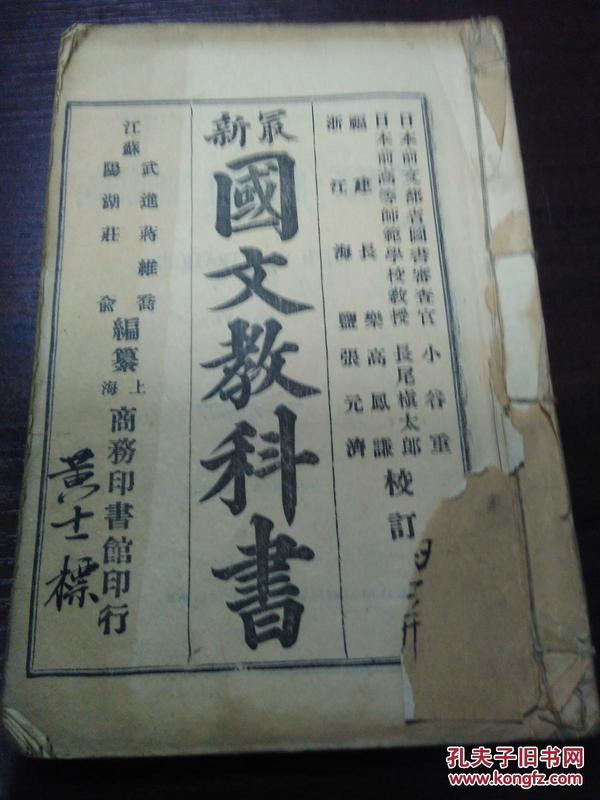 日本前文部省圖書審查官 小谷重
日本前高等師範學校教授 長尾槇太郎
福建長樂高鳳謙
浙江海鹽張元濟
校訂
最新
國文教科書
江蘇
武進蔣維喬
陽湖莊俞
編纂
上海
商務印書館印行
黃士標
孔夫子旧书网
www.kongfz.com